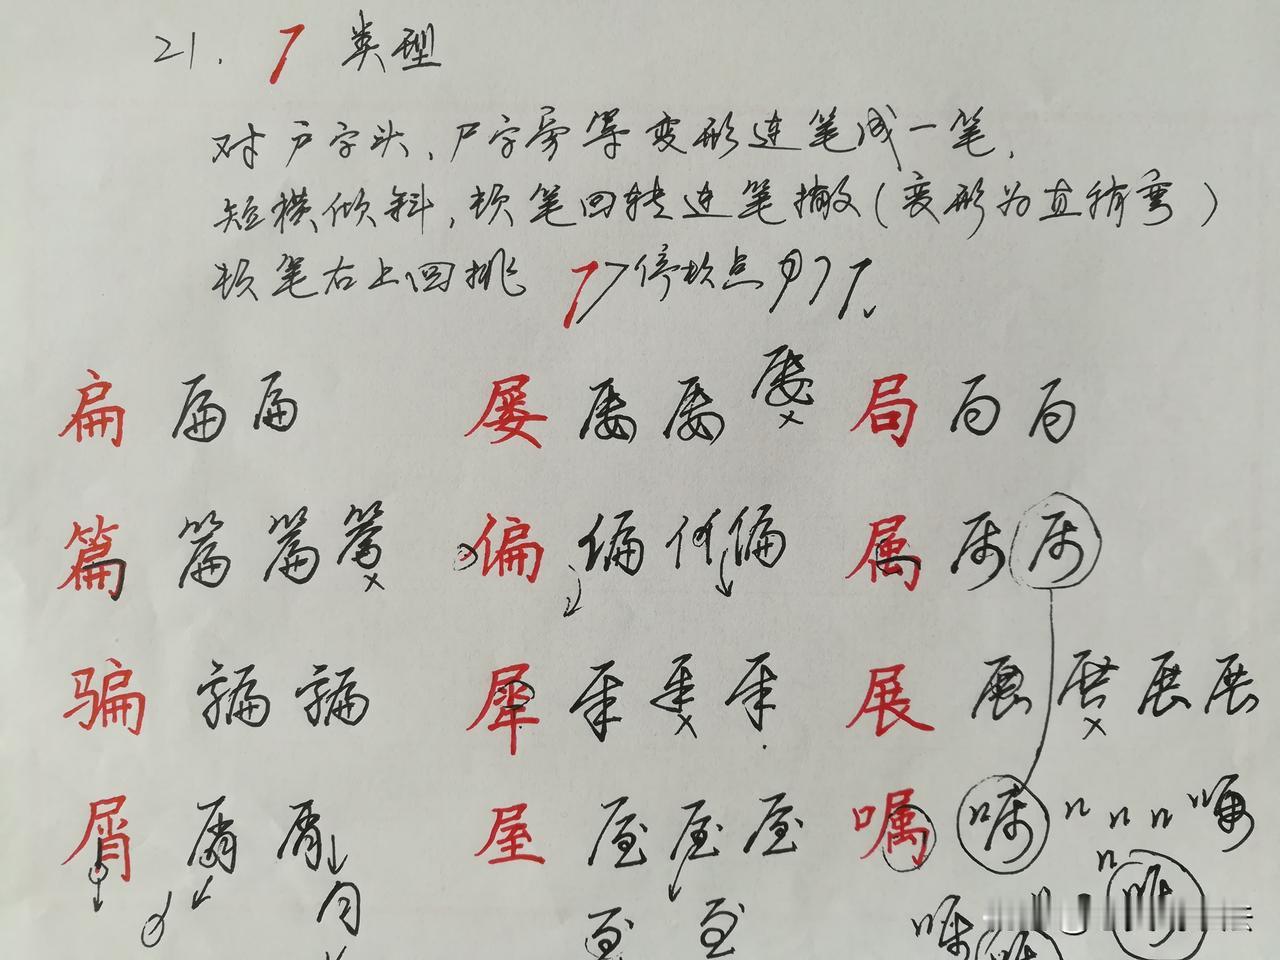 21. ㇇ 类型
对户字头、尸字旁等变形连笔成一笔,
短横倾斜,顿笔回转连笔撇(变形为直稍弯)
顿笔右上回挑 停顿点
扁 扁 扁 屡 屡 屡 屡 × 局 局 局
篇 篇 篇 篇 × 偏 偏 偏 属 属 属
骗 骗 骗 犀 犀 犀 × 犀 展 展 展 × 展 展
屑 屑 屑 屋 屋 屋 屋 嘱 嘱 嘱